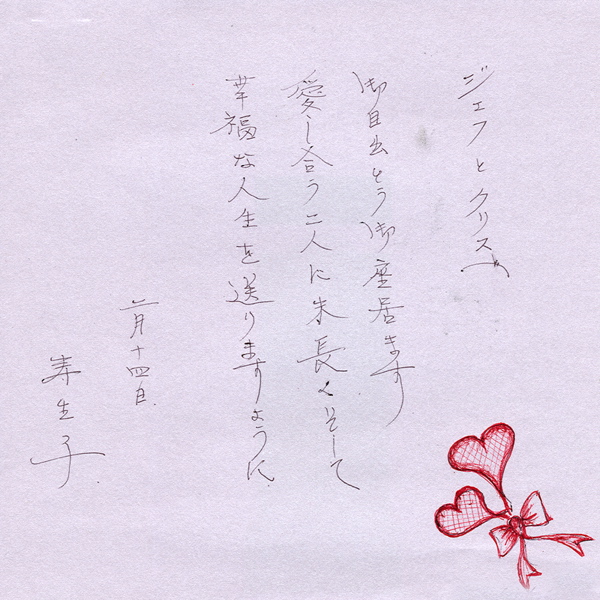 ジェフとクリスへ
御目出とう御座居ます
愛し合う二人に末長くそして
幸福な人生を送りますように
二月十四日
寿生子